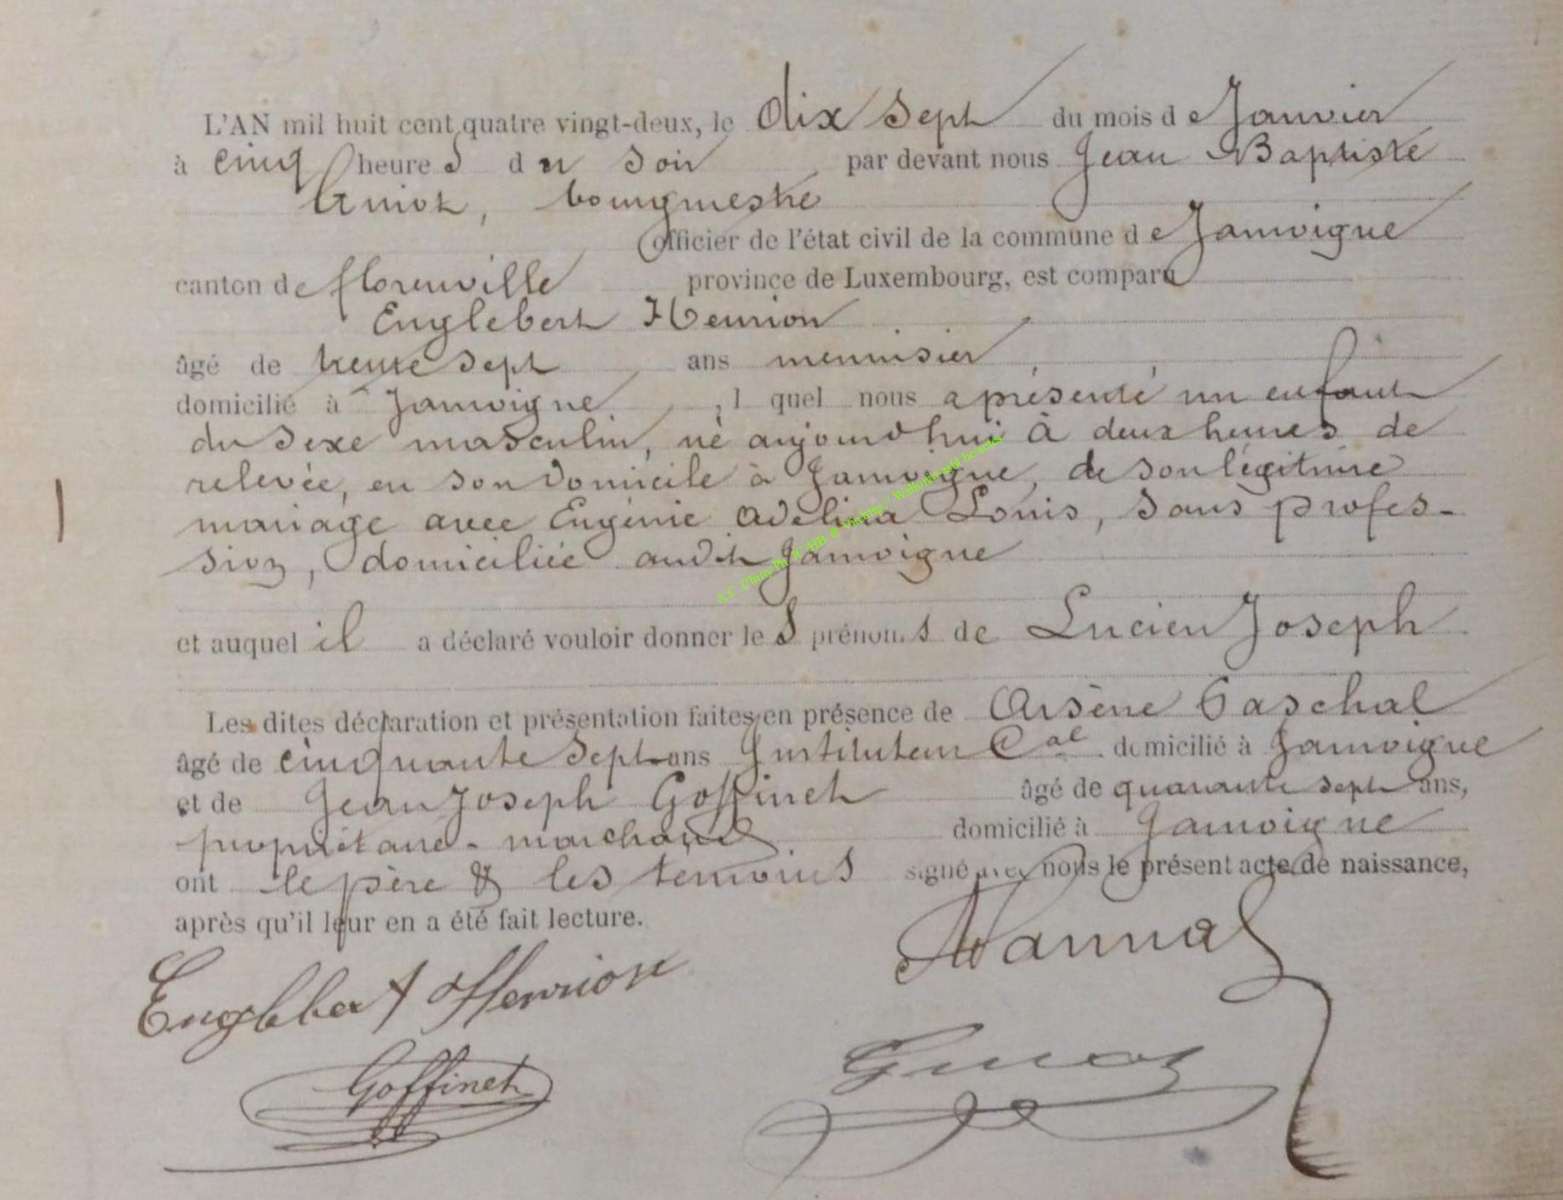 L'AN mil huit cent quatre vingt-deux, le dix sept du mois de Janvier
à cinq heures du soir par devant nous Jean Baptiste
bourgmestre
officier de l'état civil de la commune de Jamoigne
canton de florenville province de Luxembourg, est comparu
Englebert Henrion
âgé de trente sept ans menuisier
domicilié à Jamoigne, l quel nous a présenté un enfant
du sexe masculin, né aujourd'hui à deux heures de
relevée, en son domicile à Jamoigne, de son légitime
mariage avec Eugénie Adelina Louis, sans profes-
sion, domiciliée audit Jamoigne
et auquel il a déclaré vouloir donner les prénoms de Lucien Joseph
Les dites déclaration et présentation faites en présence de Arsène Paschal
âgé de cinquante sept ans Instituteur Cal domicilié à Jamoigne
et de Jean Joseph Goffinet âgé de quarante sept ans,
propriétaire - marchand domicilié à Jamoigne
ont le père & les temoins signé avec nous le présent acte de naissance,
après qu'il leur en a été fait lecture.
Englebert Henrion
Goffinet